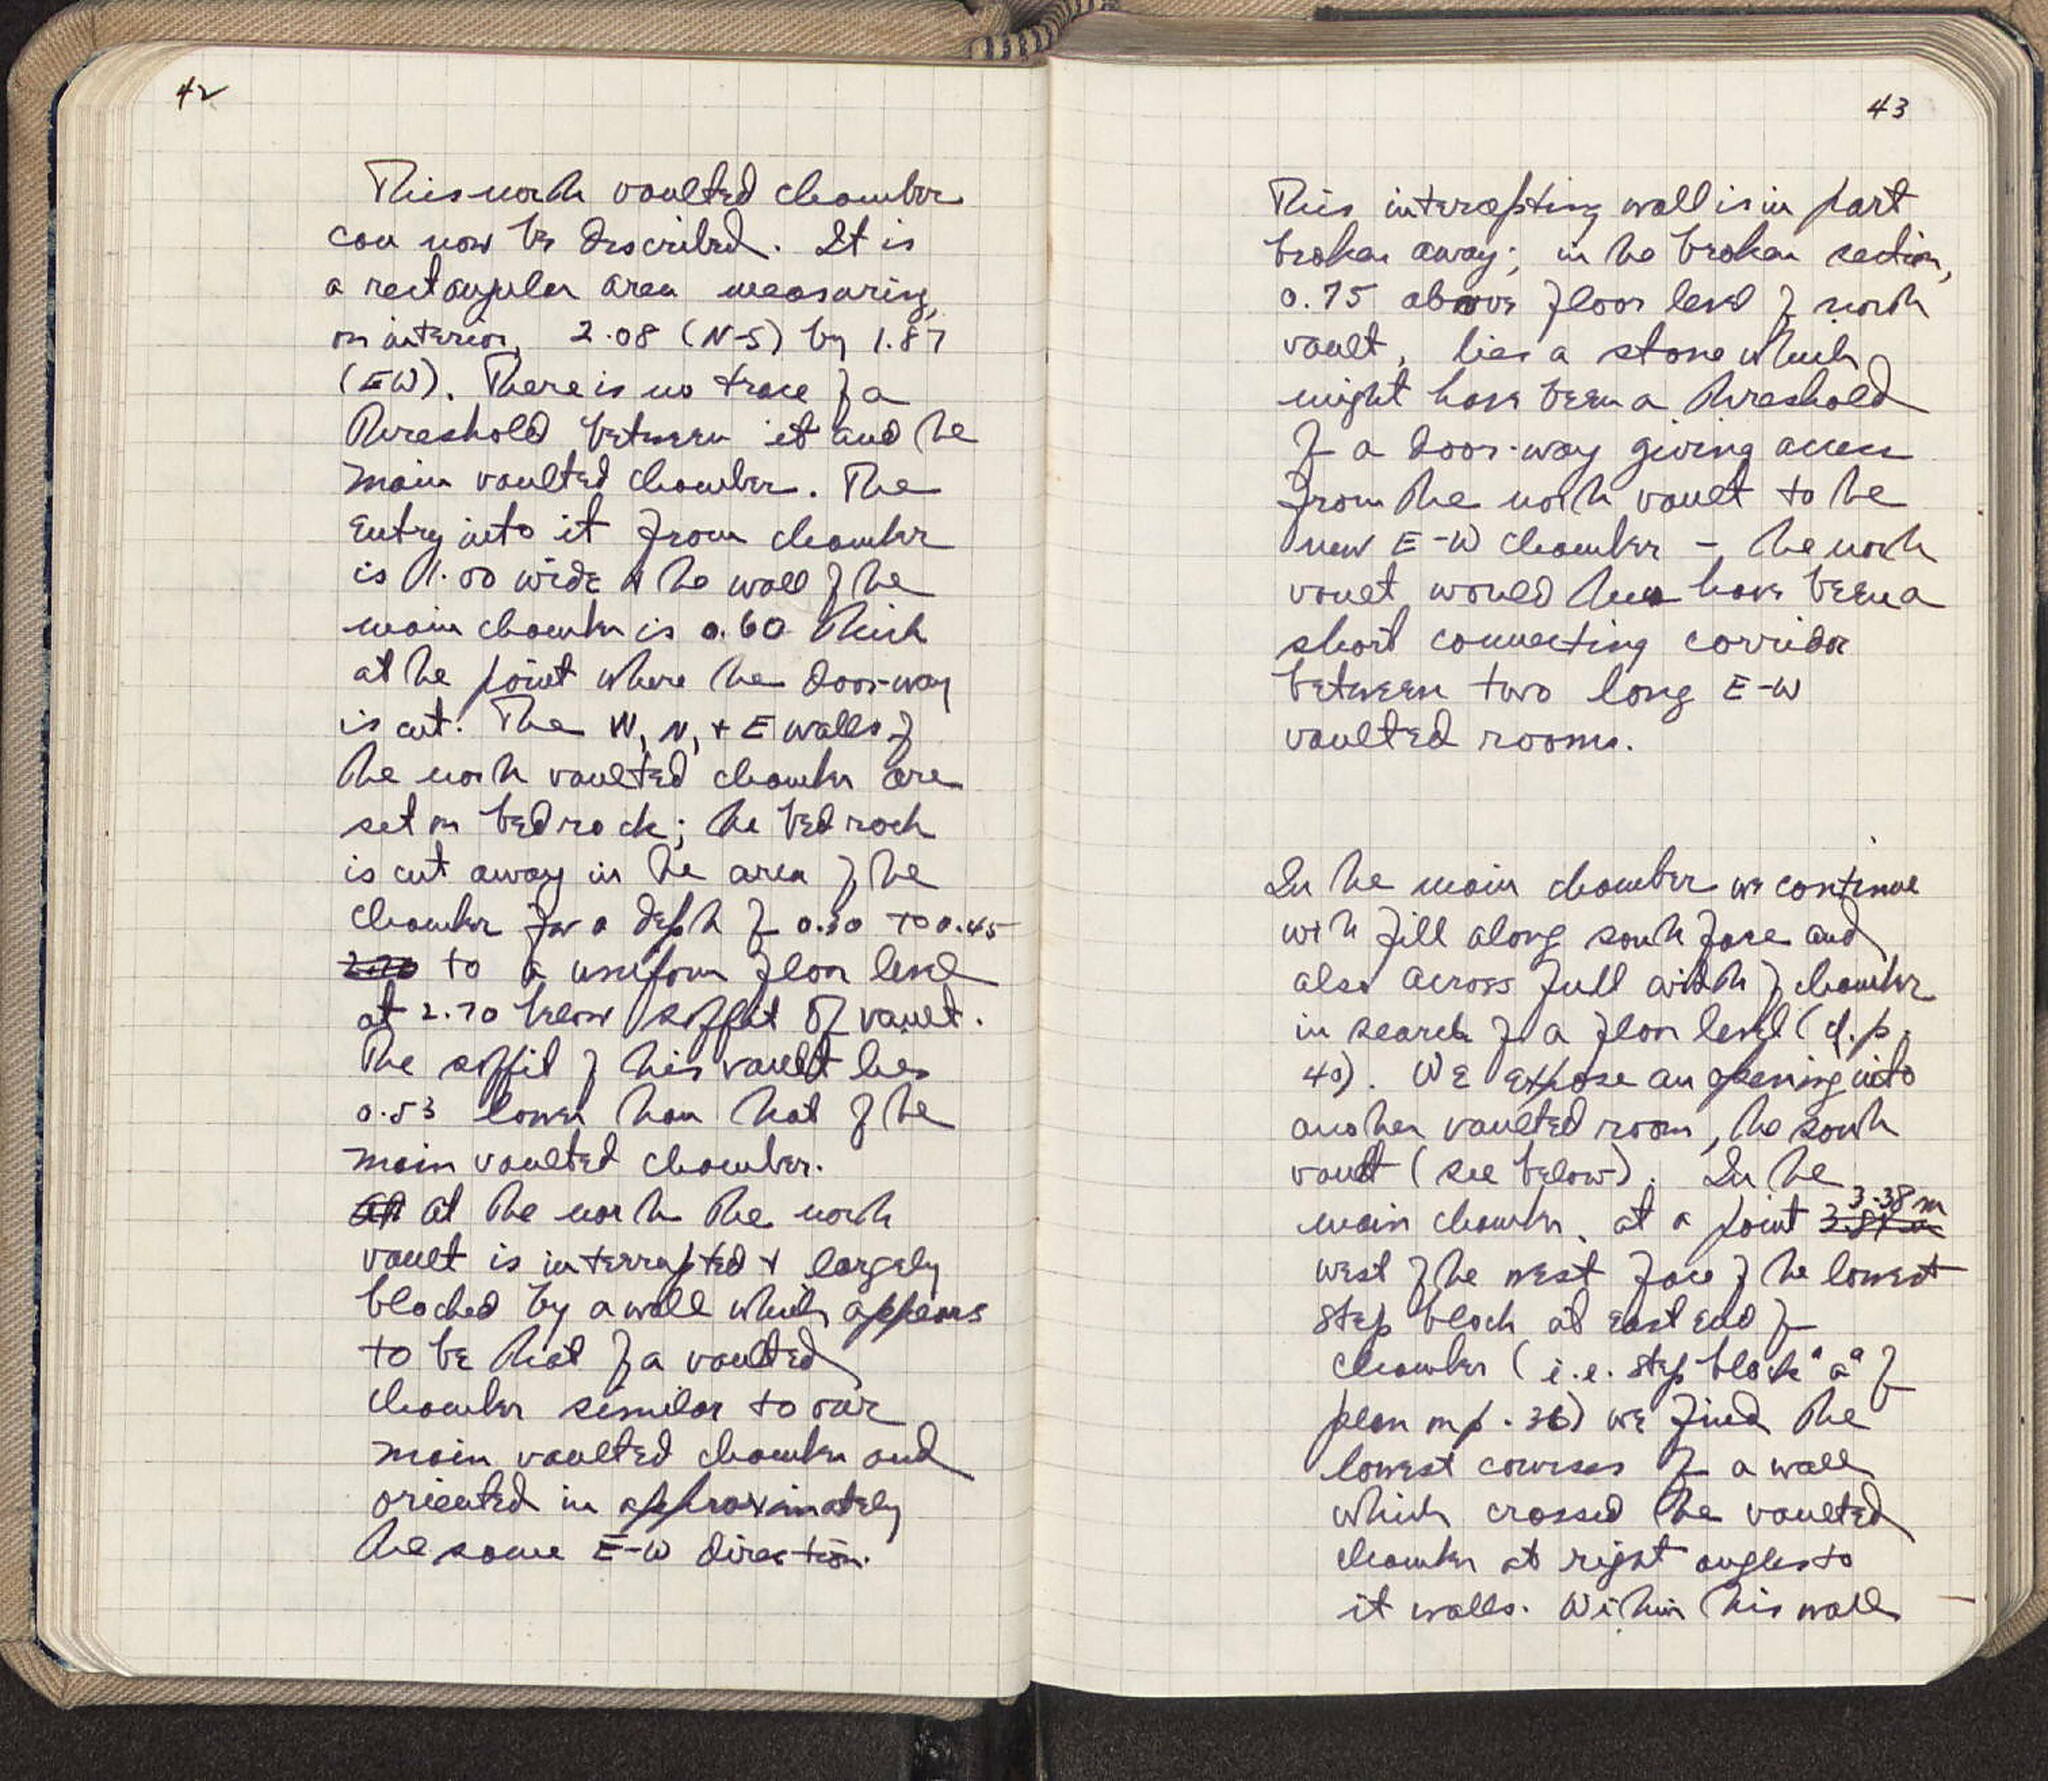 42
This north vaulted chamber
can now be described. It is
a rectangular area measuring,
on interior, 2.08 (N-S) by 1.87
(EW). There is no trace of a
threshold between it and the
main vaulted chamber. The
entry into it from chamber
is 1.00 wide & the wall of the
main chamber is 0.60 thick
at the point where the door-way
is cut. The W, N, + E walls of
the north vaulted chamber are
set on bedrock; the bedrock
is cut away in the area of the
chamber for a depth of 0.30 to 0.45
to a uniform floor level
at 2.70 below soffit of vault.
The soffit of this vault lies
0.53 lower than that of the
main vaulted chamber.
At the north the north
vault is interrupted + largely
blocked by a wall which appears
to be that of a vaulted
chamber similar to our
main vaulted chamber and
oriented in approximately
the same E-W direction.
43
This intercepting wall is in part
broken away; in the broken section,
0.75 above floor level of north
vault, lies a stone which
might have been a threshold
of a door-way giving access
from the north vault to the
new E-W chamber - the north
vault would thus have been a
short connecting corridor
between two long E-W
vaulted rooms.
In the main chamber we continue
with fill along south face and
also across full width of chamber
in search of a floor level (cf. p.
40). We expose an opening into
another vaulted room, the south
vault (see below). In the
main chamber, at a point 3.38 m
west of the west face of the lowest
step block at east end of
chamber (i.e. step block "a" of
plan on p. 36) we find the
lowest courses of a wall
which crossed the vaulted
chamber at right angles to
it walls. Within this wall